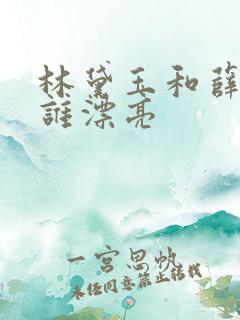 林黛玉和薛
谁漂亮
一宫思帆
未经同意禁止转载